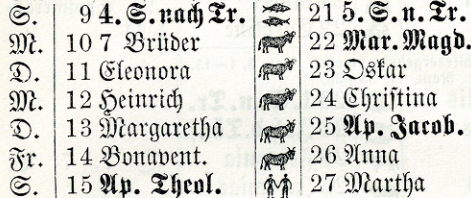 S. 9 4. S. nach Tr. 21 5. S. n. Tr.
M. 10 7 Brüder 22 Mar. Magd.
D. 11 Eleonora 23 Oskar
M. 12 Heinrich 24 Christina
D. 13 Margaretha 25 Ap. Jacob.
Fr. 14 Bonavent. 26 Anna
S. 15 Ap. Theol. 27 Martha